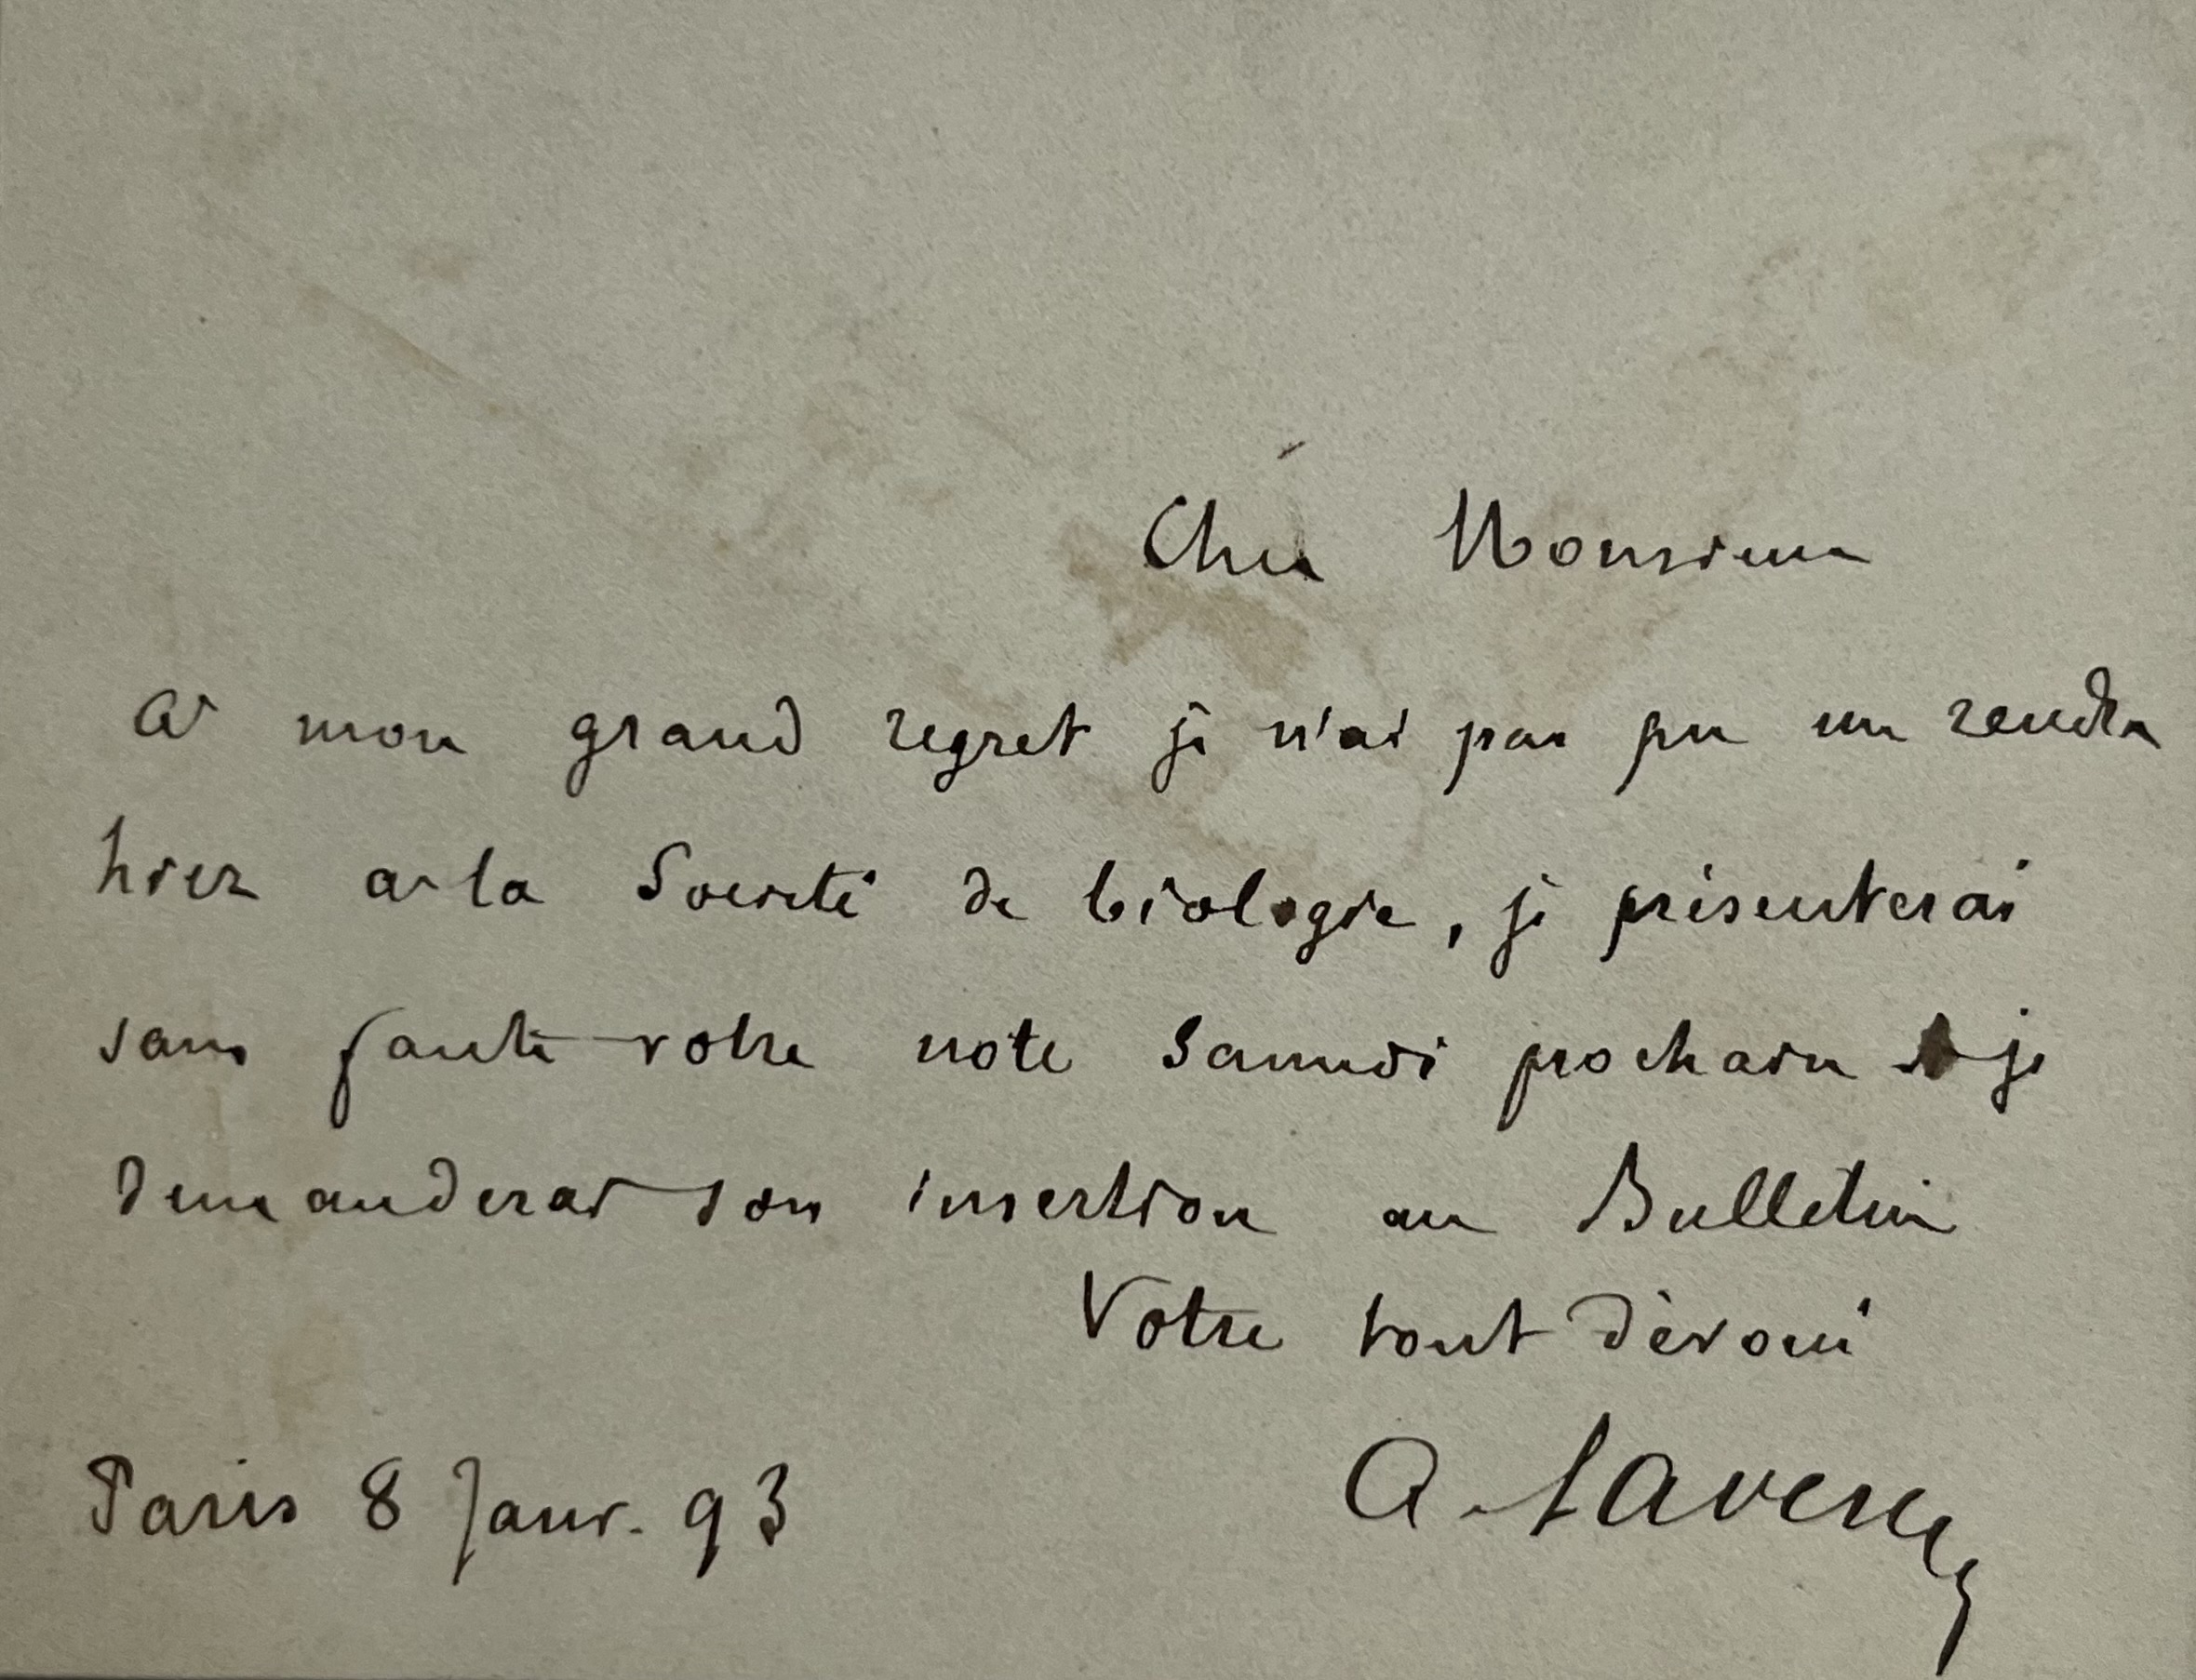 Cher Monsieur
A mon grand regret je n'ai pas pu me rendre
hier à la Société de biologie, je présenterai
sans faute votre note Samedi prochain je
demanderai son insertion au Bulletin
Votre tout dévoué
A. Laveran
Paris 8 Janv. 93